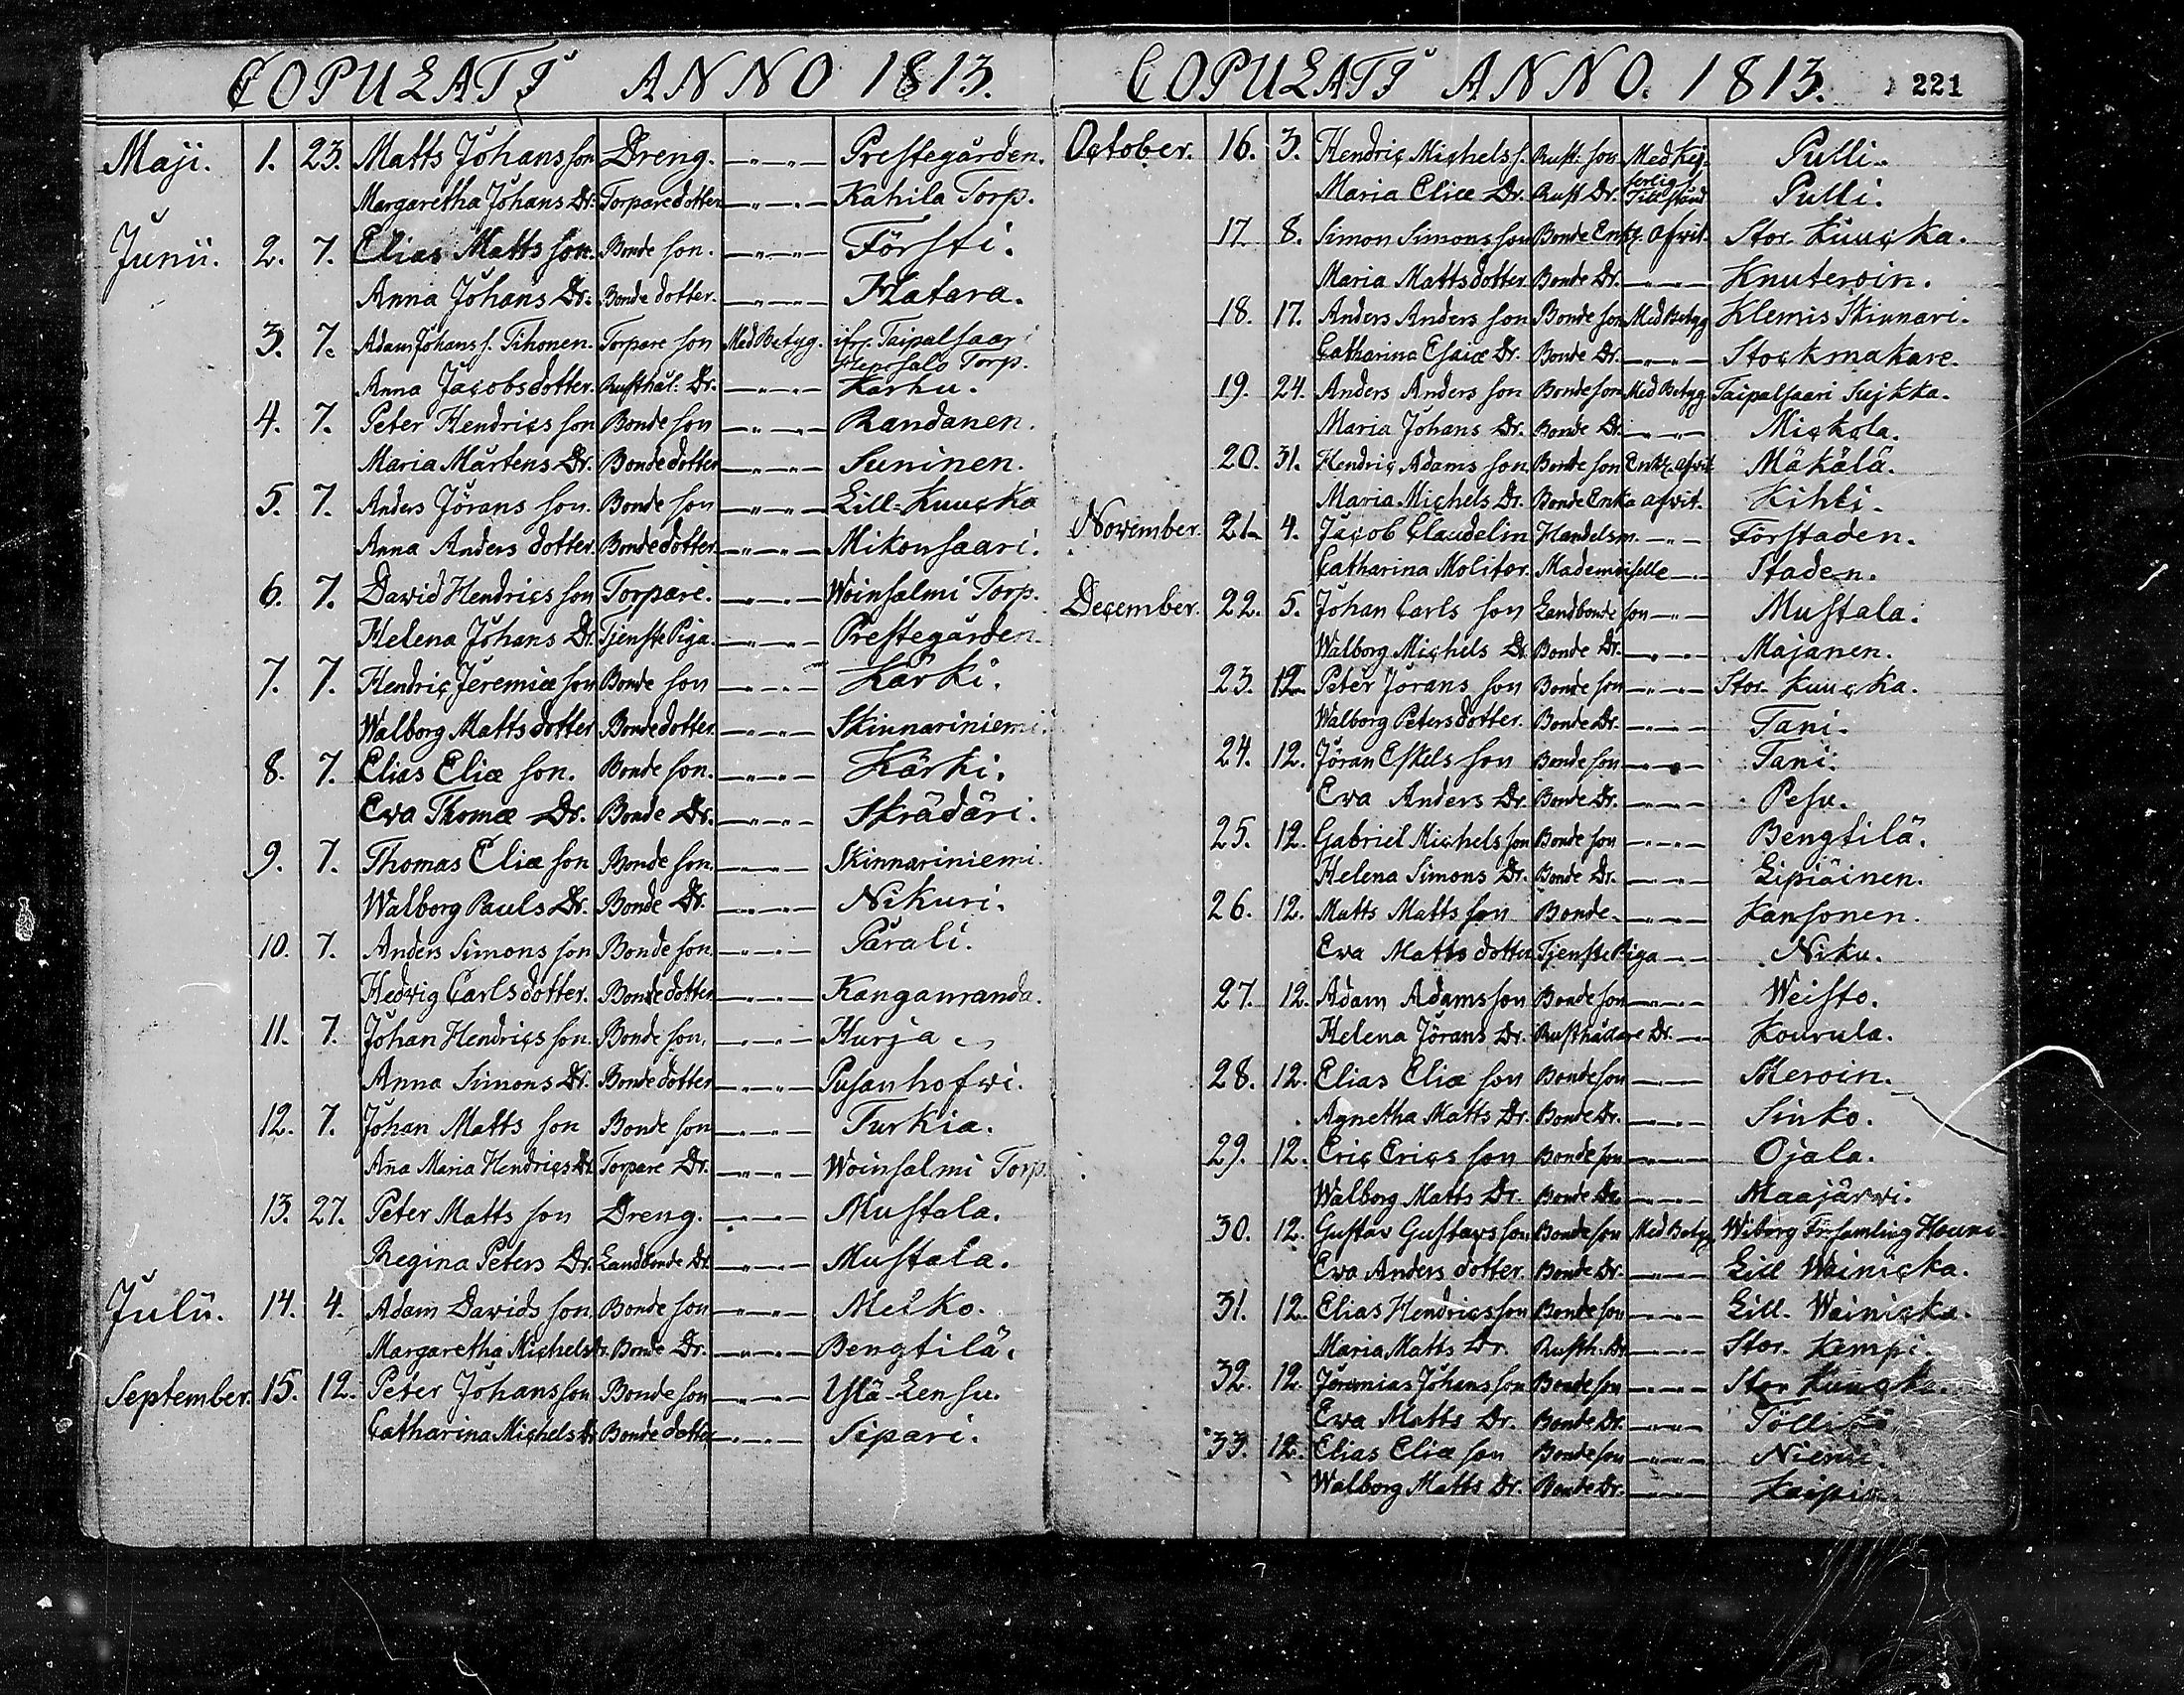 COPULATI ANNO 1813.
Maji. 1. 23. Matts Johansson Dreng. —"—"— Prestegården.
Margaretha Johans Dr. Torparedotter —"—"— Kahila Torp.
Junii. 2. 7. Elias Matts son. Bonde son. —"—"— Försti.
Anna Johans Dr. Bonde dotter. —"—"— Hatara.
3. 7. Adam Johans s. Tihonen. Torpare son Med Betyg. ifr. Taipalsaari
Torp.
Anna Jacobsdotter. Rusthål. Dr. —"—"— Karhu.
4. 7. Peter Hendrics son Bonde son —"—"— Randanen.
Maria Mårtens Dr. Bonde dotter —"—"— Suninen.
5. 7. Anders Jörans son. Bonde son —"—"— Lill-Kuucka
Anna Anders dotter. Bonde dotter —"—"— Mikonsaari.
6. 7. David Hendrics son Torpare. —"—"— Woinsalmi Torp.
Helena Johans Dr. Tjenste Piga. —"—"— Prestegården.
7. 7. Hendric Jeremiæ son Bonde son —"—"— Kärki.
Walborg Matts dotter Bonde dotter. —"—"— Skinnariniemi.
8. 7. Elias Eliæ son. Bonde son. —"—"— Kärki.
Eva Thomæ Dr. Bonde Dr. —"—"— Skrädäri.
9. 7. Thomas Eliæ son Bonde son. —"—"— Skinnariniemi.
Walborg Pauls Dr. Bonde Dr. —"—"— Nikuri.
10. 7. Anders Simons son Bonde son. —"—"— Pärali.
Hedvig Carls dotter. Bonde dotter —"—"— Kangasranda.
11. 7. Johan Hendrics son. Bonde son. —"—"— Hurja.
Anna Simons Dr. Bonde dotter —"—"— Pusanhofwi.
12. 7. Johan Matts son Bonde son —"—"— Turkia.
Aña Maria Hendrics Dr. Torpare Dr. —"—"— Woinsalmi Torp.
13. 27. Peter Matts son Dreng. —"—"— Mustala.
Regina Peters Dr. Landbonde Dr. —"—"— Mustala.
Julii. 14. 4. Adam Davids son. Bonde son —"—"— Melko.
Margaretha Michels Dr. Bonde Dr. —"—"— Bengtilä.
September. 15. 12. Peter Johansson Bonde son —"—"— Ylä-Lensu.
Catharina Michels Dr. Bonde dotter —"—"— Sipari.
COPULATI ANNO. 1813. 221
October. 16. 3. Hendric Michels s. Rust. son Med Kej-
serlig Pulli.
Maria Eliæ Dr. Rust Dr. Tillstånd Pulli.
17 8. Simon Simons son Bonde Enkl. Afvit. Stor. Kuucka.
Maria Mattsdotter Bonde Dr. —"—"— Knuteroin.
18. 17. Anders Anders son Bonde son Med Betyg Klemis Skinnari.
Catharina Esaiæ Dr. Bonde Dr. —"—"— Stockmakare.
19. 24. Anders Anders son Bonde son Med Betyg Taipalsaari Suikka.
Maria Johans Dr. Bonde Dr. —"—"— Mickola.
20. 31. Hendric Adams son. Bonde son Enkl. afvit Mäkälä.
Maria Michels Dr. Bonde Enka afvit. Kihli.
November. 21. 4. Jacob Claudelin Handelsm. —"— Förstaden.
Catharina Molitor. Mademoiselle —"— Staden.
December. 22. 5. Johan Carls son Landbonde son —"— Mustala.
Walborg Michels Dr. Bonde Dr. —"—"— Majanen.
23. 12. Peter Jörans son Bonde son —"—"— Stor. Kuucka.
Walborg Petersdotter. Bonde Dr. —"—"— Tani.
24. 12. Jöran Eskels son Bonde son —"—"— Tani.
Eva Anders Dr. Bonde Dr. —"—"— Pesu.
25. 12. Gabriel Michels son Bonde son —"—"— Bengtilä.
Helena Simons Dr. Bonde Dr. —"—"— Lipiäinen.
26. 12. Matts Matts son Bonde. —"—"— Kansonen.
Eva Matts dotter Tjenste Piga —"— Niku.
27. 12. Adam Adamsson Bonde son —"—"— Weisto.
Helena Jörans Dr. Rusthådare Dr. —"— Kourula.
28. 12. Elias Eliæ son Bonde son —"— Meroin.
Agnetha Matts Dr. Bonde Dr. —"—"— Sinko.
29. 12. Eric Erics son Bonde son —"—"— Ojala.
Walborg Matts Dr. Bonde Dr. —"—"— Maajärwi.
30. 12. Gustav Gustavs son Bonde son Med Betyg Wiborg Församling
Eva Anders dotter. Bonde Dr. —"—"— Lill Wainicka.
31. 12. Elias Hendrics son Bonde son —"—"— Lill. Wainicka.
Maria Matts Dr. Rusth. Dr. —"—"— Stor. Kempi.
32. 12. Jeremias Johans son Bonde son —"—"— Stor Kuucka.
Eva Matts Dr. Bonde Dr. —"—"—
33. 12. Elias Eliæ son Bonde son —"—"— Niemi.
Walborg Matts Dr. Bonde Dr. —"—"—